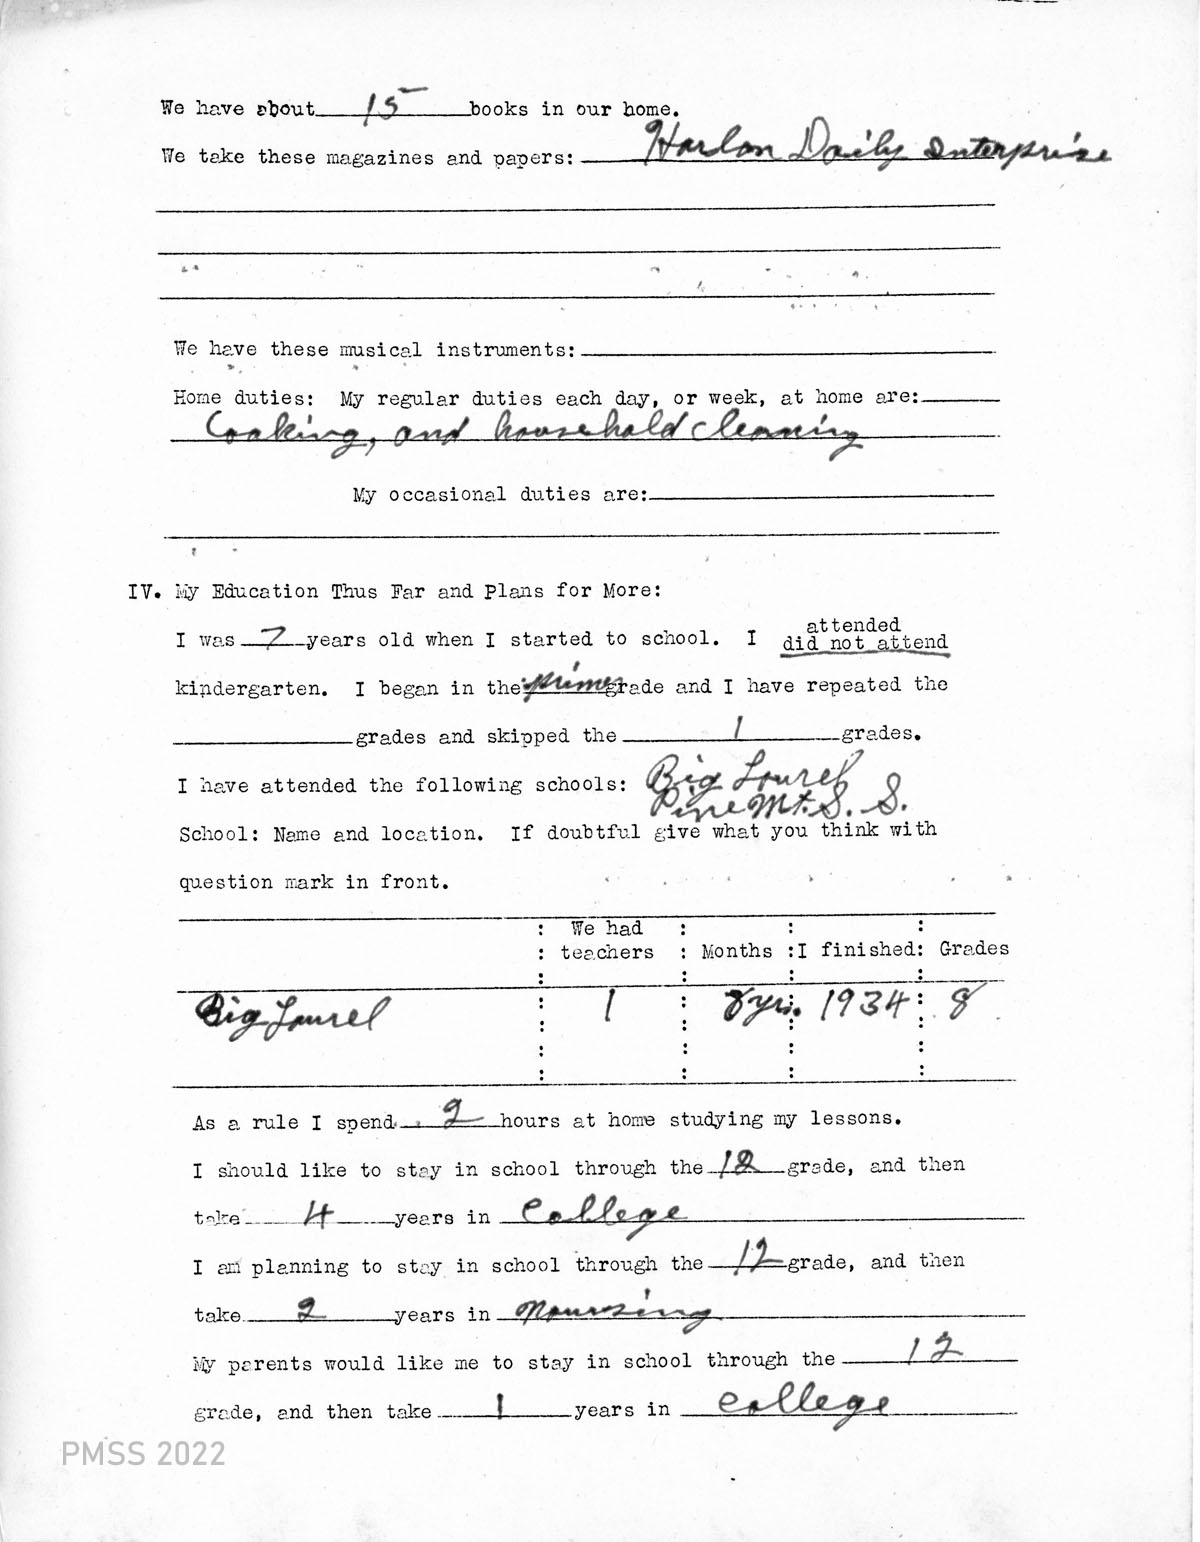 We have about 15 books in our home.
We take these magazines and papers: Harlan Daily Enterprise
We have these musical instruments:
Home duties: My regular duties each day, or week, at home are:
Cooking, and household cleaning
My occasional duties are:
IV. My Education Thus Far and Plans for More:
attended
I was 7 years old when I started to school. I did not attend
kindergarten. I began in the prime grade and I have repeated the
grades and skipped the 1 grades.
I have attended the following schools: Big Laurel
Pine Mt. S. S.
School: Name and location. If doubtful give what you think with
question mark in front.
: We had : : :
: teachers : Months :I finished: Grades
Big Laurel : 1 : 8 yrs. : 1934 : 8
As a rule I spend 2 hours at home studying my lessons.
I should like to stay in school through the 12 grade, and then
take 4 years in College
I am planning to stay in school through the 12 grade, and then
take 2 years in noursing
My parents would like me to stay in school through the 12
grade, and then take 1 years in college
PMSS 2022